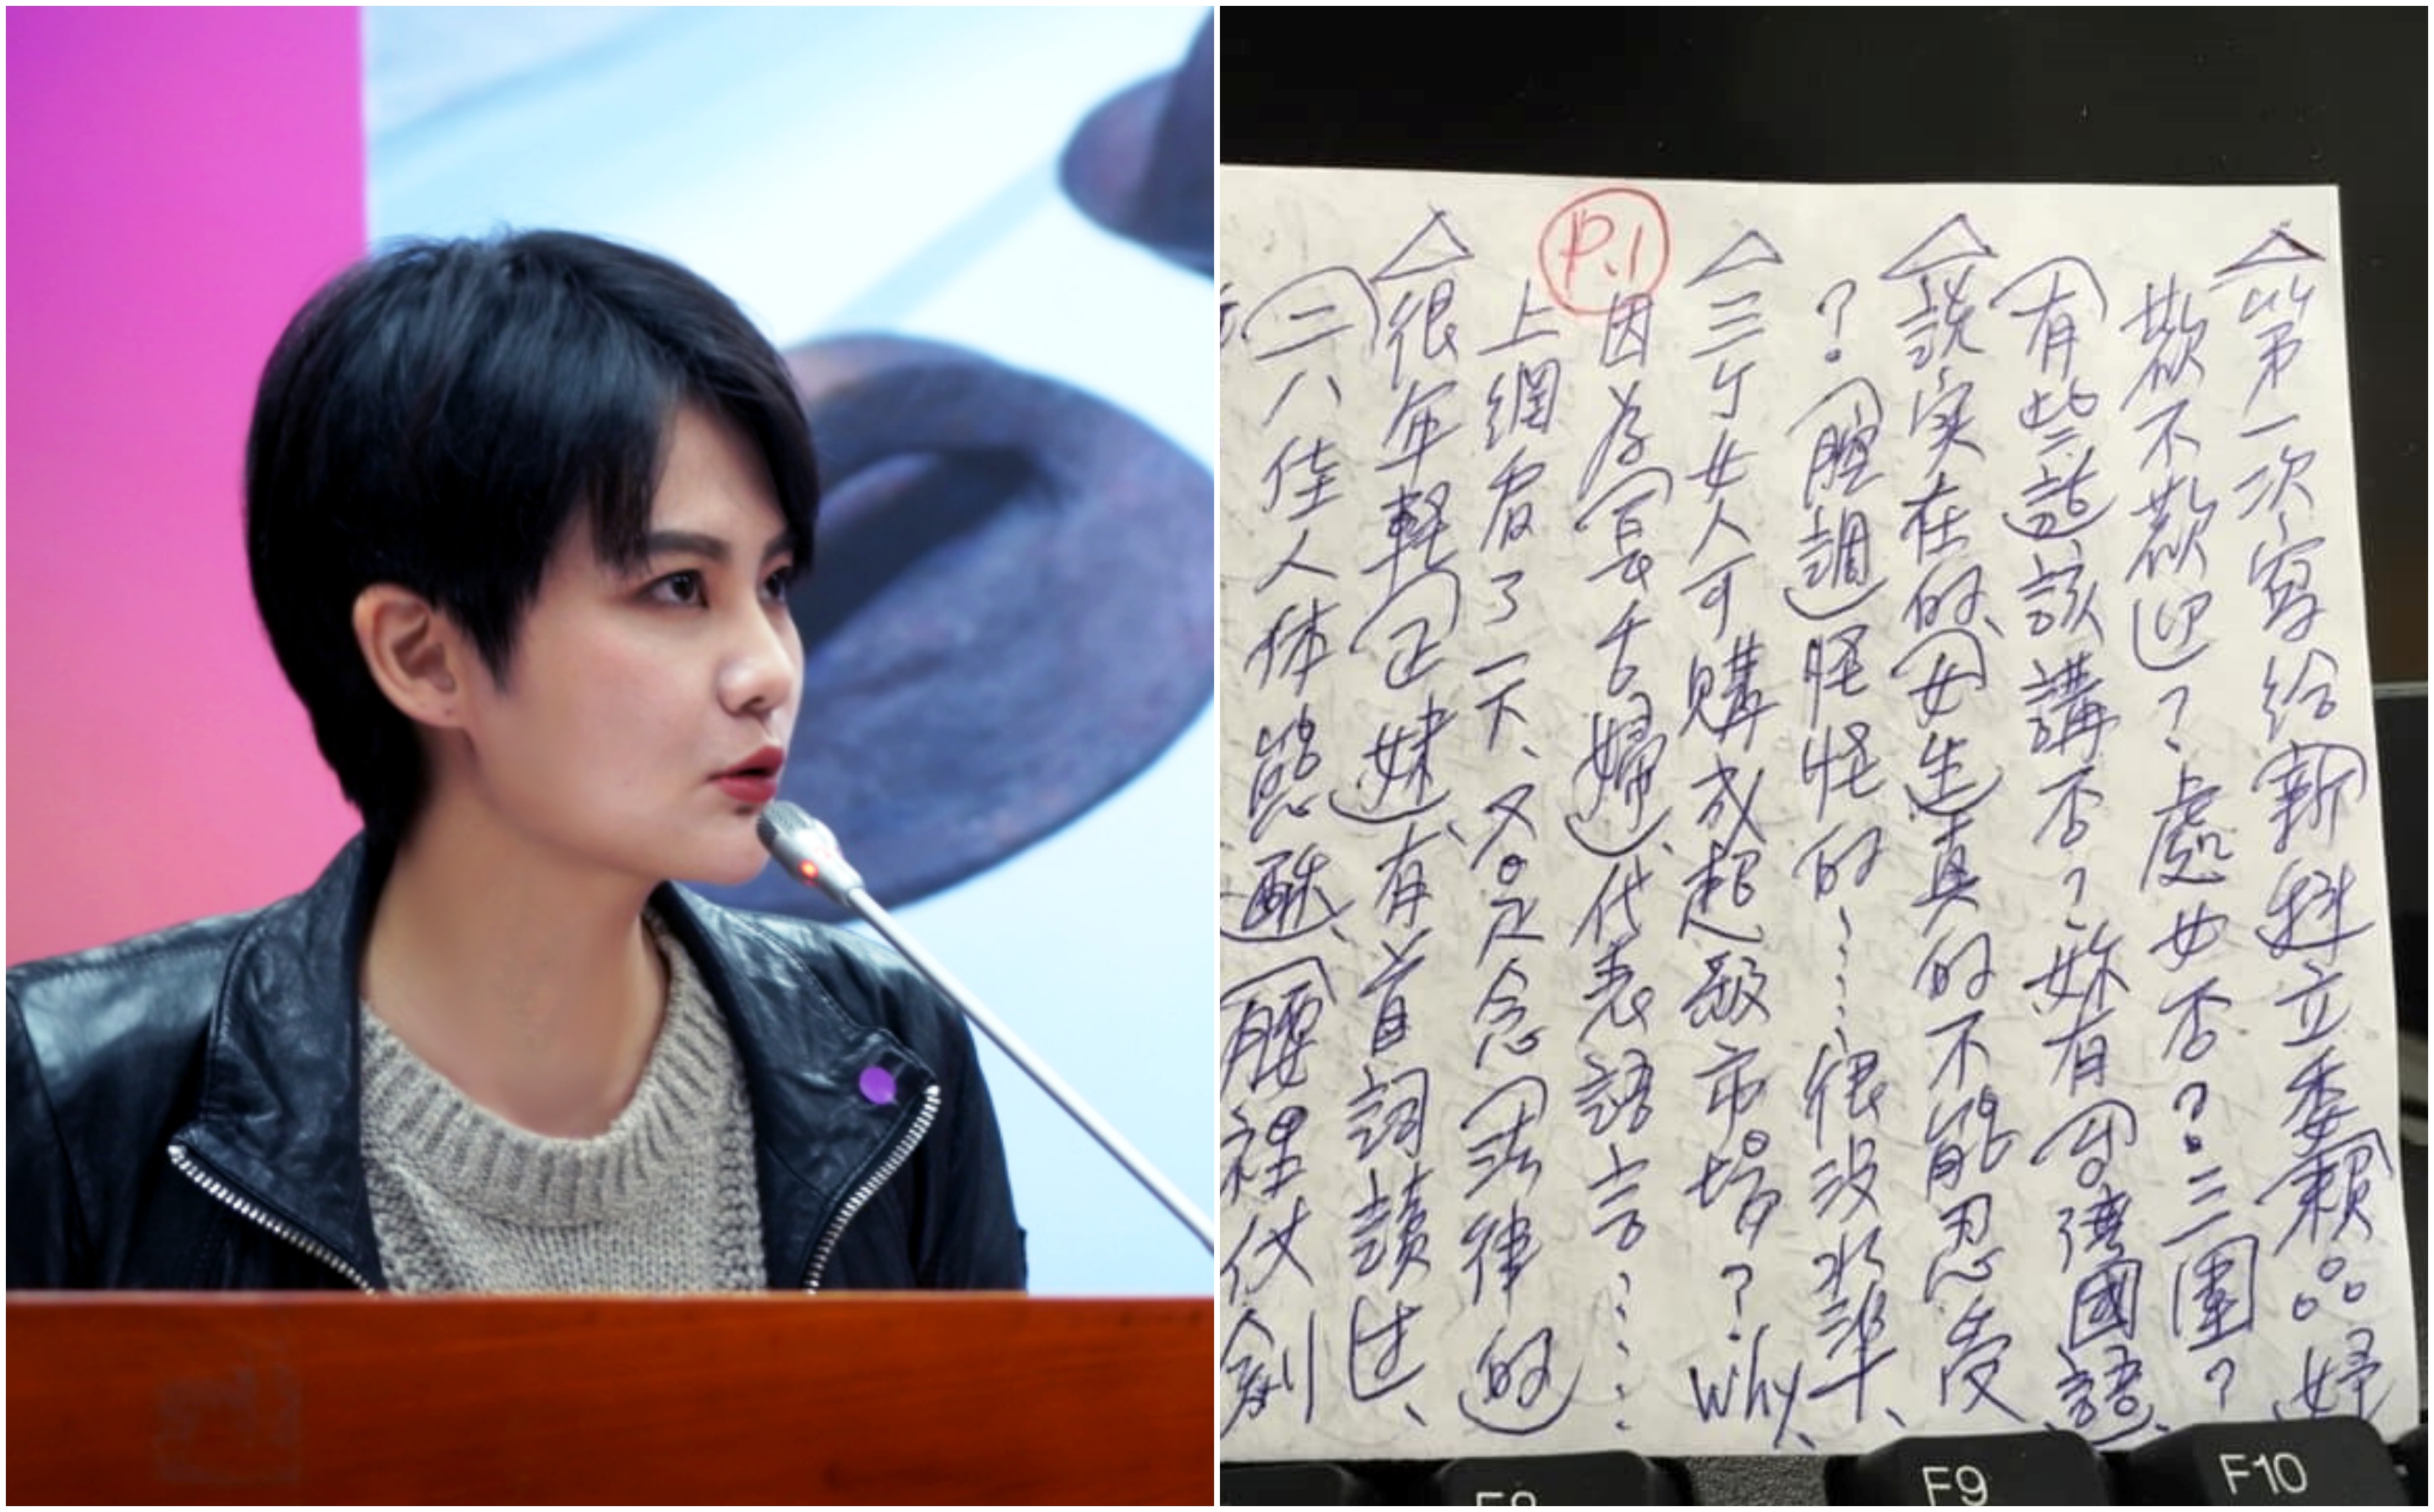 △第一次寫給新科立委賴品妤
歡不歡迎？處女否？三圍？
有些話該講否？妳有台灣國語、
△說実在的、女生真的不能忍受
？腔調怪怪的……很没水準、
△三个女人可購成超級市場？Why、
因為長舌婦、代表語言……
P.1
上網看了一下、又是念法律的
△很年輕正妹、有首詞讀过、
二八佳人体
腰裡仗劍
F8
F9
F10